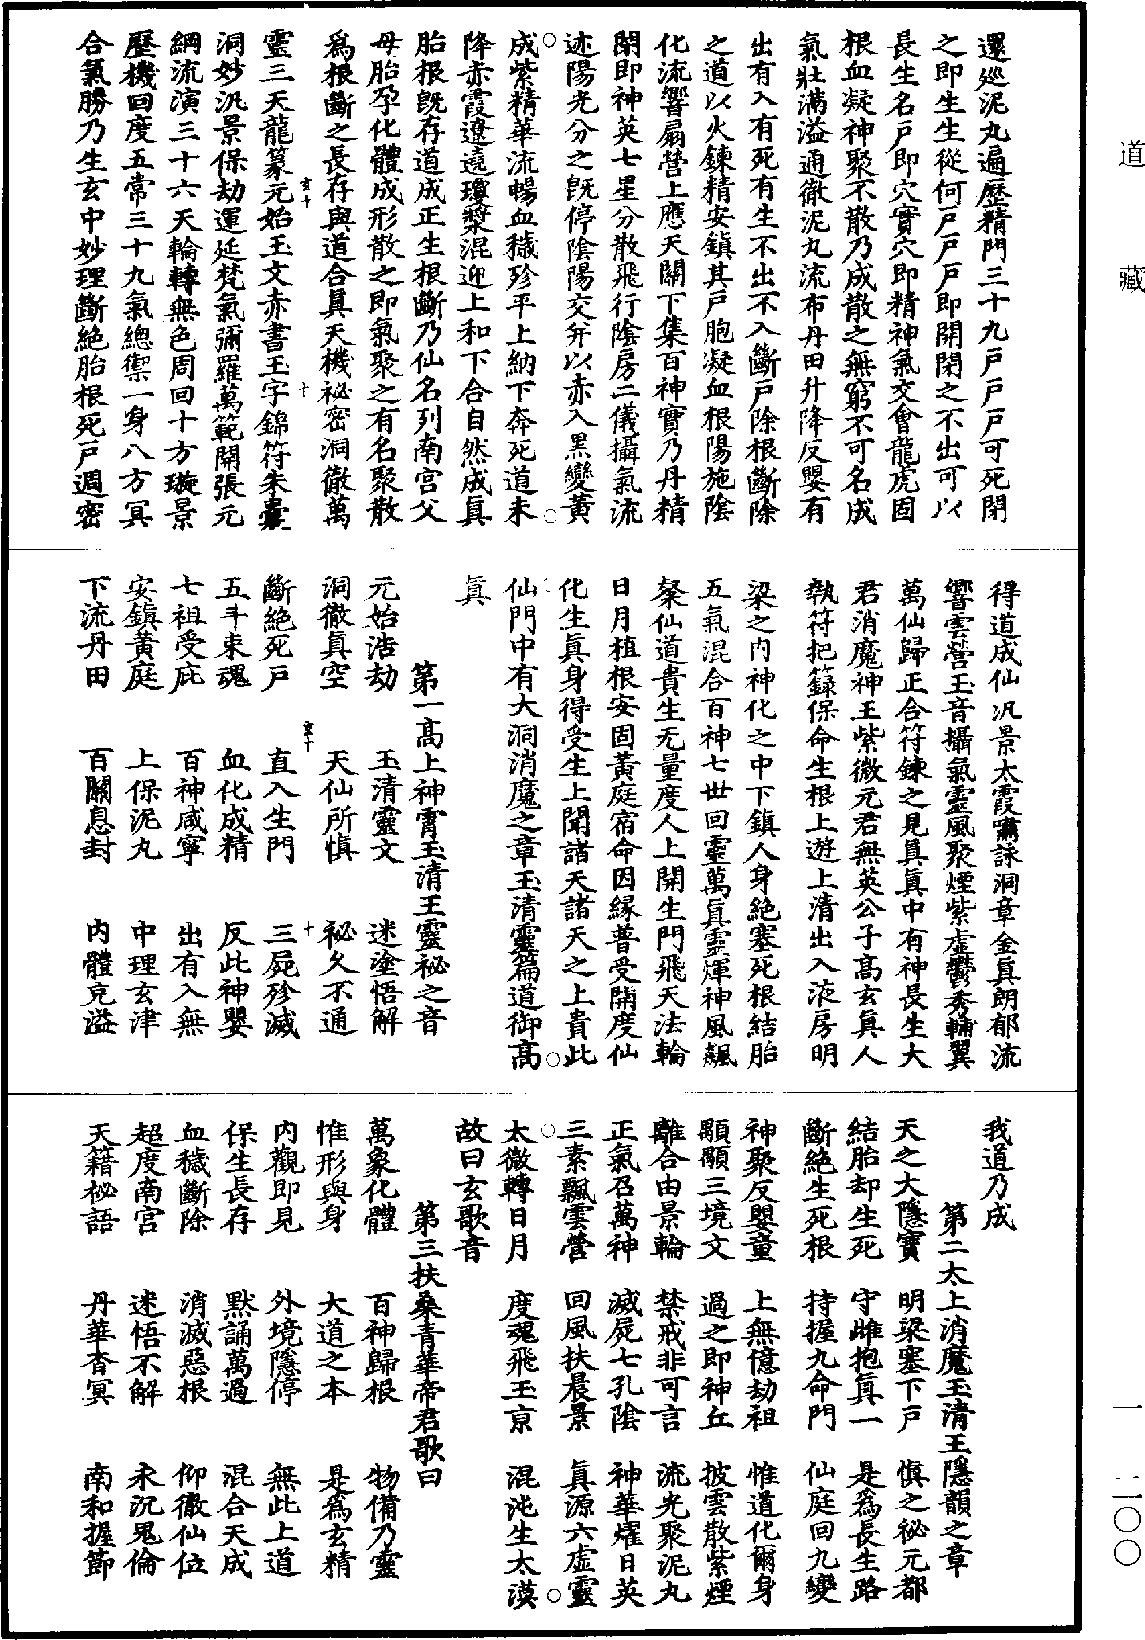 道藏
一 二〇〇
還巡泥丸遍歷精門三十九戶戶戶可死閉
之即生生從何戶戶戶即開閉之不出可以
長生名戶即穴實穴即精神氣交會龍虎固
根血凝神聚不散乃成散之無窮不可名成
氣壯滿溢通徹泥丸流布丹田升降反嬰有
出有入有死有生不出不入斷戶除根斷除
之道以火鍊精安鎮其戶胞凝血根陽施陰
化流響扇營上應天關下集百神寶乃丹精
閉即神英七星分散飛行陰房二儀攝氣流
迹陽光分之既停陰陽交弁以赤入黑變黃
成紫精華流暢血穢殄平上納下奔死道未
降赤霞遼遠瓊漿混迎上和下合自然成真
胎根既存道成正生根斷乃仙名列南宮父
母胎孕化體成形散之即氣聚之有名聚散
為根斷之長存與道合真天機祕密洞徹萬
靈三天龍篆元始玉文赤書玉字錦符朱囊
洞妙汎景保劫運延梵氣彌羅萬範開張元
綱流演三十六天輪轉無色周回十方璇景
歷機回度五常三十九氣總禦一身八方冥
合氣勝乃生玄中妙理斷絕胎根死戶週密
得道成仙汎景太霞嘯詠洞章金真朗郁流
響雲營玉音攝氣靈風聚煙紫虛鬱秀輔翼
萬仙歸正合符鍊之見真真中有神長生大
君消魔神王紫微元君無英公子高玄真人
執符把籙保命生根上遊上清出入液房明
梁之內神化之中下鎮人身絕塞死根結胎
五氣混合百神七世回靈萬真靈煇神風飆
粲仙道貴生无量度人上開生門飛天法輪
日月植根安固黃庭宿命因緣普受開度仙
化生真身得受生上聞諸天諸天之上貴此
仙門中有大洞消魔之章玉清靈篇道御高
真
第一高上神霄玉清王靈祕之音
元始浩劫 玉清靈文 迷塗悟解
洞徹真空 天仙所慎 祕久不通
斷絕死戶 直入生門 三屍殄滅
五斗束魂 血化成精 反此神嬰
七祖受庇 百神咸寧 出有入無
安鎮黃庭 上保泥丸 中理玄津
下流丹田 百關息封 內體充溢
我道乃成
第二太上消魔玉清王隱韻之章
天之大隱寶 明梁塞下戶 慎之祕元都
結胎却生死 守雌抱真一 是為長生路
斷絕生死根 持握九命門 仙庭回九變
神聚反嬰童 上無億劫祖 惟道化爾身
顒顒三境文 過之即神丘 披雲散紫煙
離合由景輪 禁戒非可言 流光聚泥丸
正氣召萬神 滅屍七孔陰 神華燿日英
三素飄雲營 回風扶晨景 真源六虛靈
太微轉日月 度魂飛玉京 混沌生太漠
故曰玄歌音
第三扶桑青華帝君歌曰
萬象化體 百神歸根 物備乃靈
惟形與身 大道之本 是為玄精
內觀即見 外境隱停 無此上道
保生長存 默誦萬過 混合天成
血穢斷除 消滅惡根 仰徹仙位
超度南宮 迷悟不解 永沉鬼倫
天籍祕語 丹華杳冥 南和握節